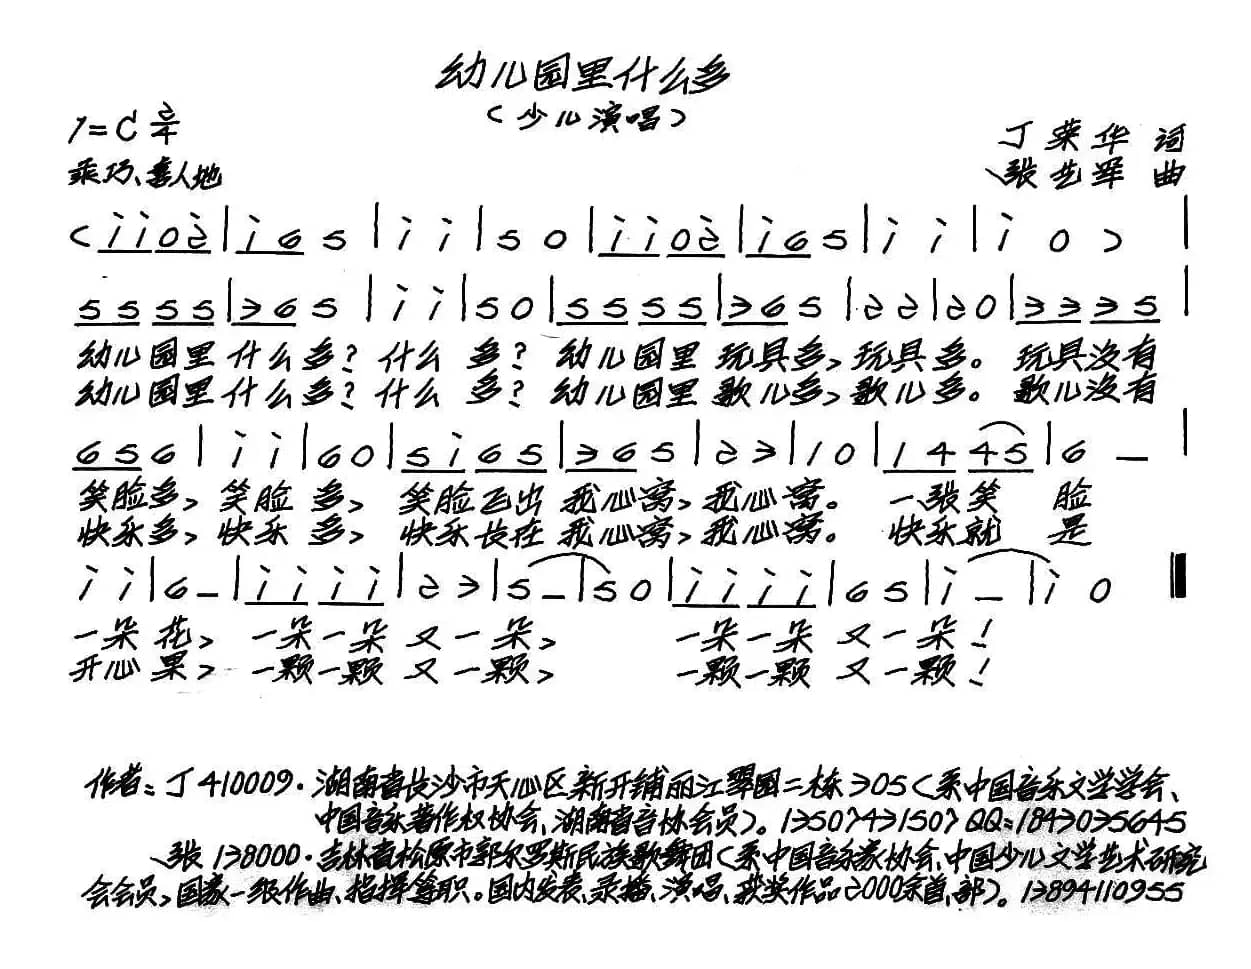 幼儿园里什么多
（少儿演唱）
1=C 2/4
丁荣华 词
乖巧、喜人地
张艺军 曲
( i i 0 2 | i 6 5 | i i | 5 0 | i i 0 2 | i 6 5 | i i | i 0 ) |
5 5 5 5 | 3 6 5 | i i | 5 0 | 5 5 5 5 | 3 6 5 | 2 2 | 2 0 | 3 3 3 5 |
幼儿园里 什么多？什么 多？ 幼儿园里 玩具多，玩具 多。 玩具没有
幼儿园里 什么多？什么 多？ 幼儿园里 歌儿多，歌儿 多。 歌儿没有
6 5 6 | i i | 6 0 | 5 i 6 5 | 3 6 5 | 2 3 | 1 0 | 1 4 4 5 | 6 — |
笑脸多，笑脸 多， 笑脸飞出 我心窝，我心 窝。 一张笑 脸
快乐多，快乐 多， 快乐长在 我心窝，我心 窝。 快乐就 是
i i | 6 — | i i i i | 2 3 | 5 — | 5 0 | i i i i | 6 5 | i — | i 0 ‖
一朵 花， 一朵一朵 又一 朵， 一朵一朵 又一 朵！
开心 果， 一颗一颗 又一 颗， 一颗一颗 又一 颗！
作者：丁 410009·湖南省长沙市天心区新开铺丽江翠园二栋305（系中国音乐文学学会、
中国音乐著作权协会、湖南省音协会员）。13507431507 QQ:1843035645
张 138000·吉林省松原市郭尔罗斯民族歌舞团（系中国音乐家协会、中国少儿文学艺术研究
会会员，国家一级作曲、指挥等职。国内发表、录播、演唱、获奖作品2000余首、部）。13894110955